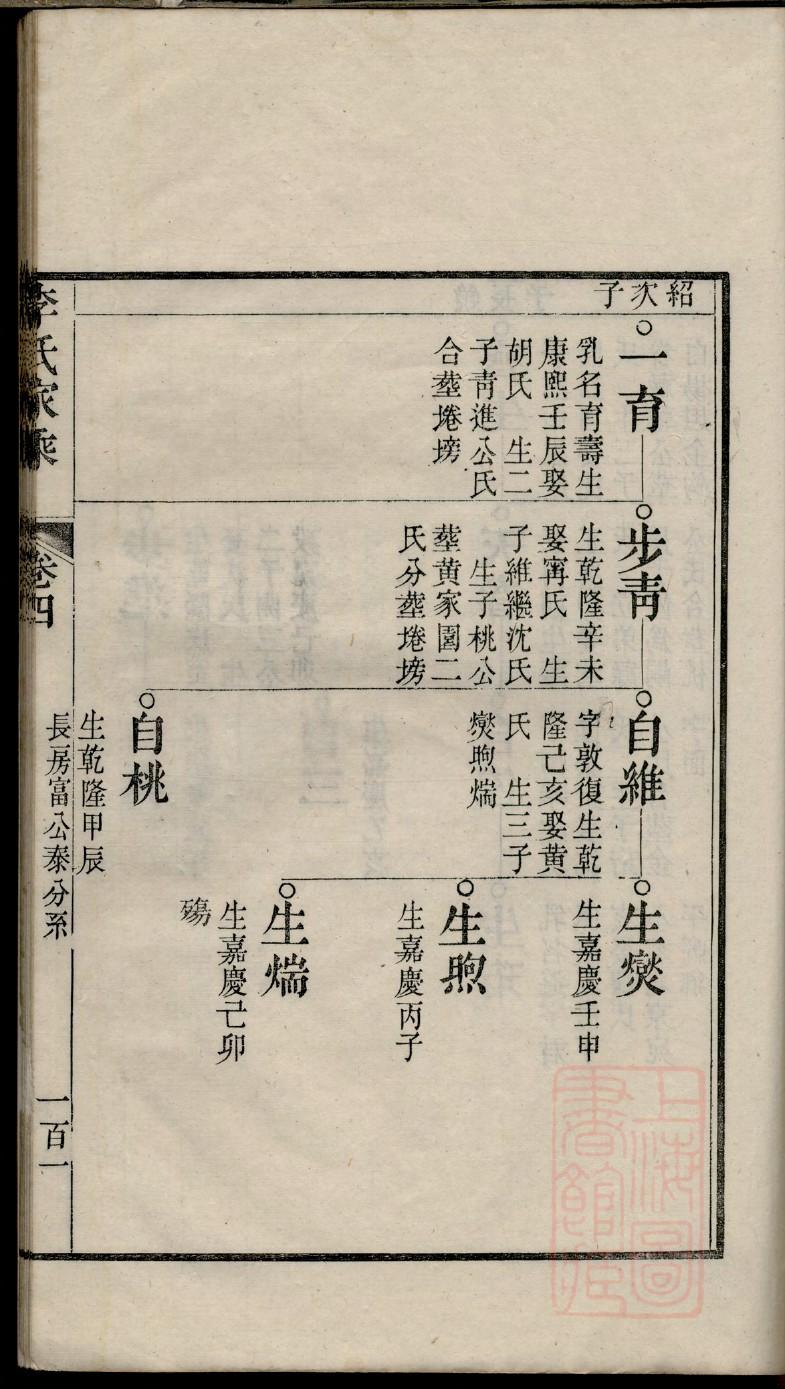 紹次子
一育
乳名育壽生
康熙壬辰娶
胡氏 生二
子青進公氏
合塟埢塝
步青
生乾隆辛未
娶甯氏 生
子維繼沈氏
生子桃公
塟黄家園二
氏分塟埢塝
自維
字敦復生乾
隆己亥娶黄
氏 生三子
爕煦煓
自桃
生乾隆甲辰
生爕
生嘉慶壬申
生煦
生嘉慶丙子
生煓
生嘉慶己卯
殤
李氏家乘
卷四
長房富公泰分系
一百一
上海圖
書館藏